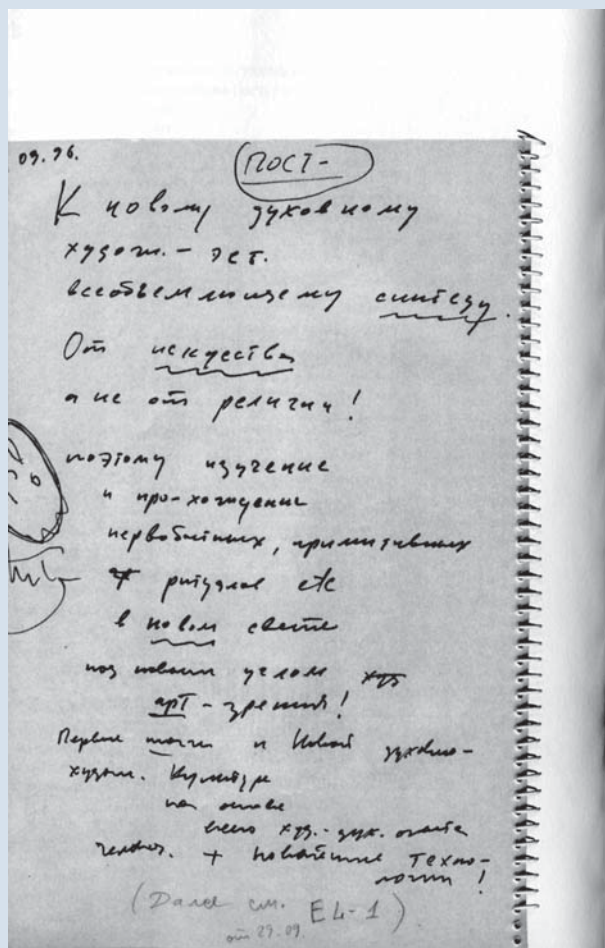 09.96.
ПОСТ-
К новому духовному
худож. - эст.
всеобъемлющему синтезу.
От искусства
а не от религии!
поэтому изучение
и про-хождение
первобытных, примитивных
ритуалов etc
в новом свете
под новым углом худ
арт - зрения!
Первые к Новой духовно-
худож. Культуре
на основе
всего худ.-дух. опыта
человеч. + новейшие техно-
логии!
(Далее см. EL-1)
от 29.09.